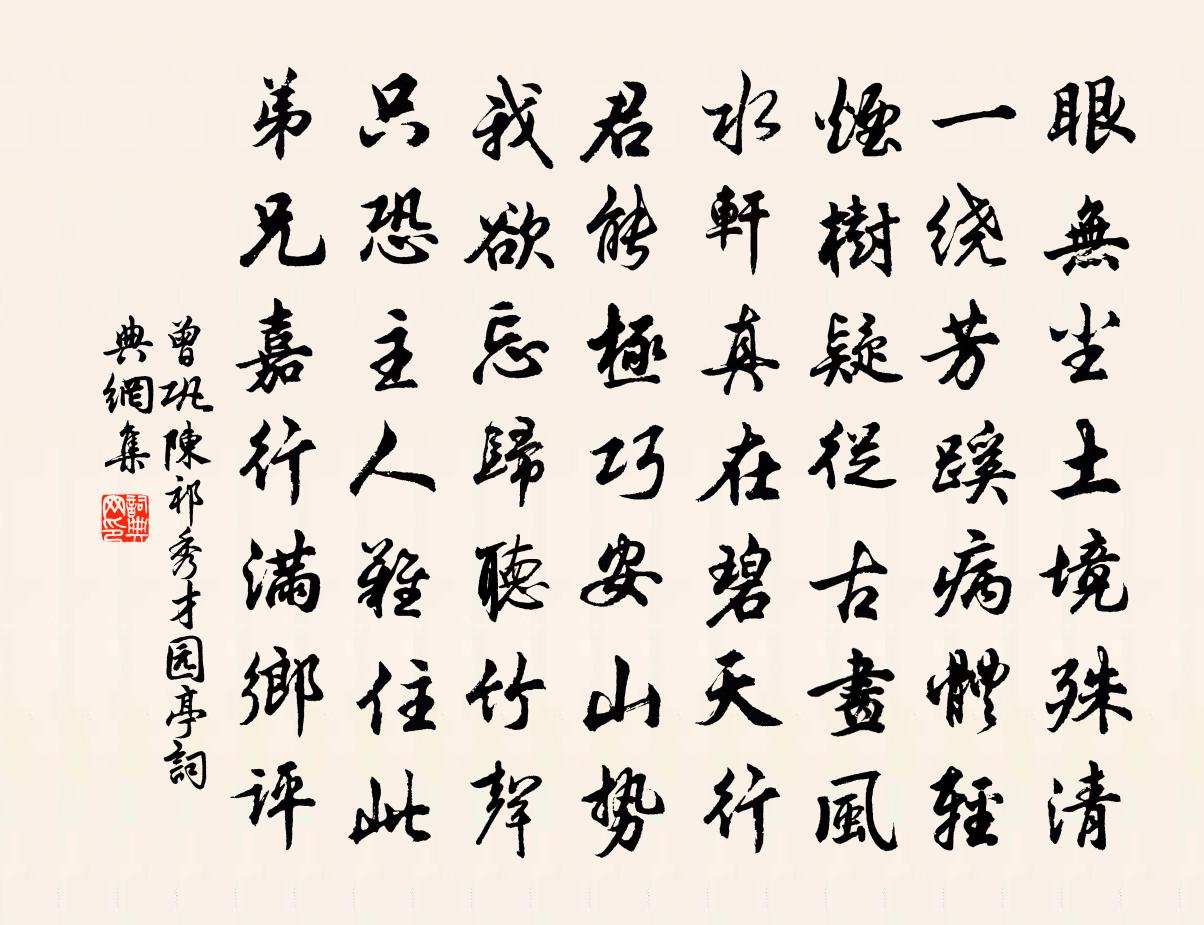 眼無尘土境殊清
一绕芳蹊病體輕
煙樹疑從古畫風
水軒真在碧天行
君能極巧安山势
我欲忘歸聽竹聲
只恐主人難住此
弟兄嘉行满鄉评
曾巩陳祁秀才园亭詞
典網集
詞典网印